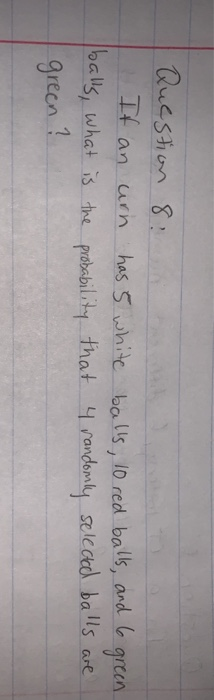 Question 8:
If an urn has 5 white balls, 10 red balls, and 6 green
balls, what is the probability that 4 randomly selected balls are
green?